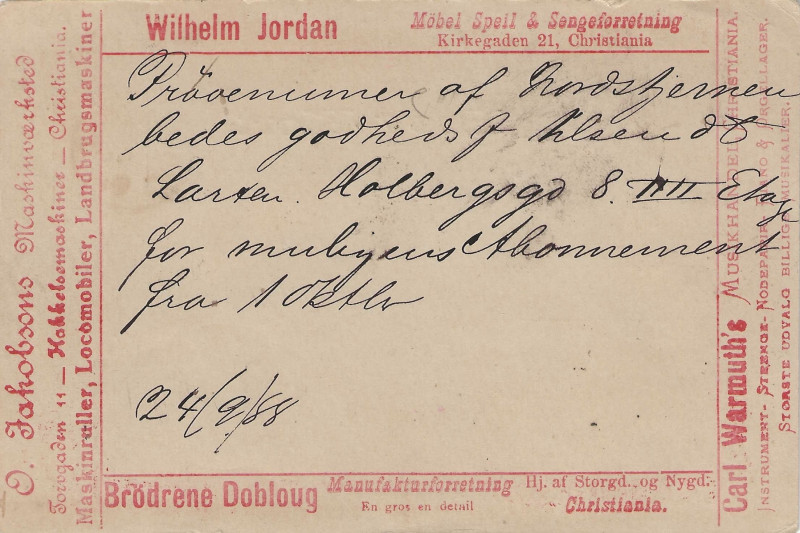 Wilhelm Jordan
Möbel Speil & Sengeforretning
Kirkegaden 21, Christiania
Prövenumer af Nordstjernen
bedes godheds
Larsen. Holbergsgd 8. IIII Etage
for muligens Abonnement
fra 1 Oktbr
24/9/88
Brödrene Dobloug
Manufakturforretning
En gros en detail
Hj. af Storgd. og Nygd.
Christiania.
O. Jakobsons Maskinværksted
Torvgaden 11 — Hakkelsemaskiner — Christiania.
Maskinruller, Locomobiler, Landbrugsmaskiner
Carl Warmuth's MUSIKHANDEL CHRISTIANIA.
INSTRUMENT- STRENGE- NODEPAPIR- PIANO & ORGELLAGER.
STÖRSTE UDVALG BILLIGE MUSIKALIER.